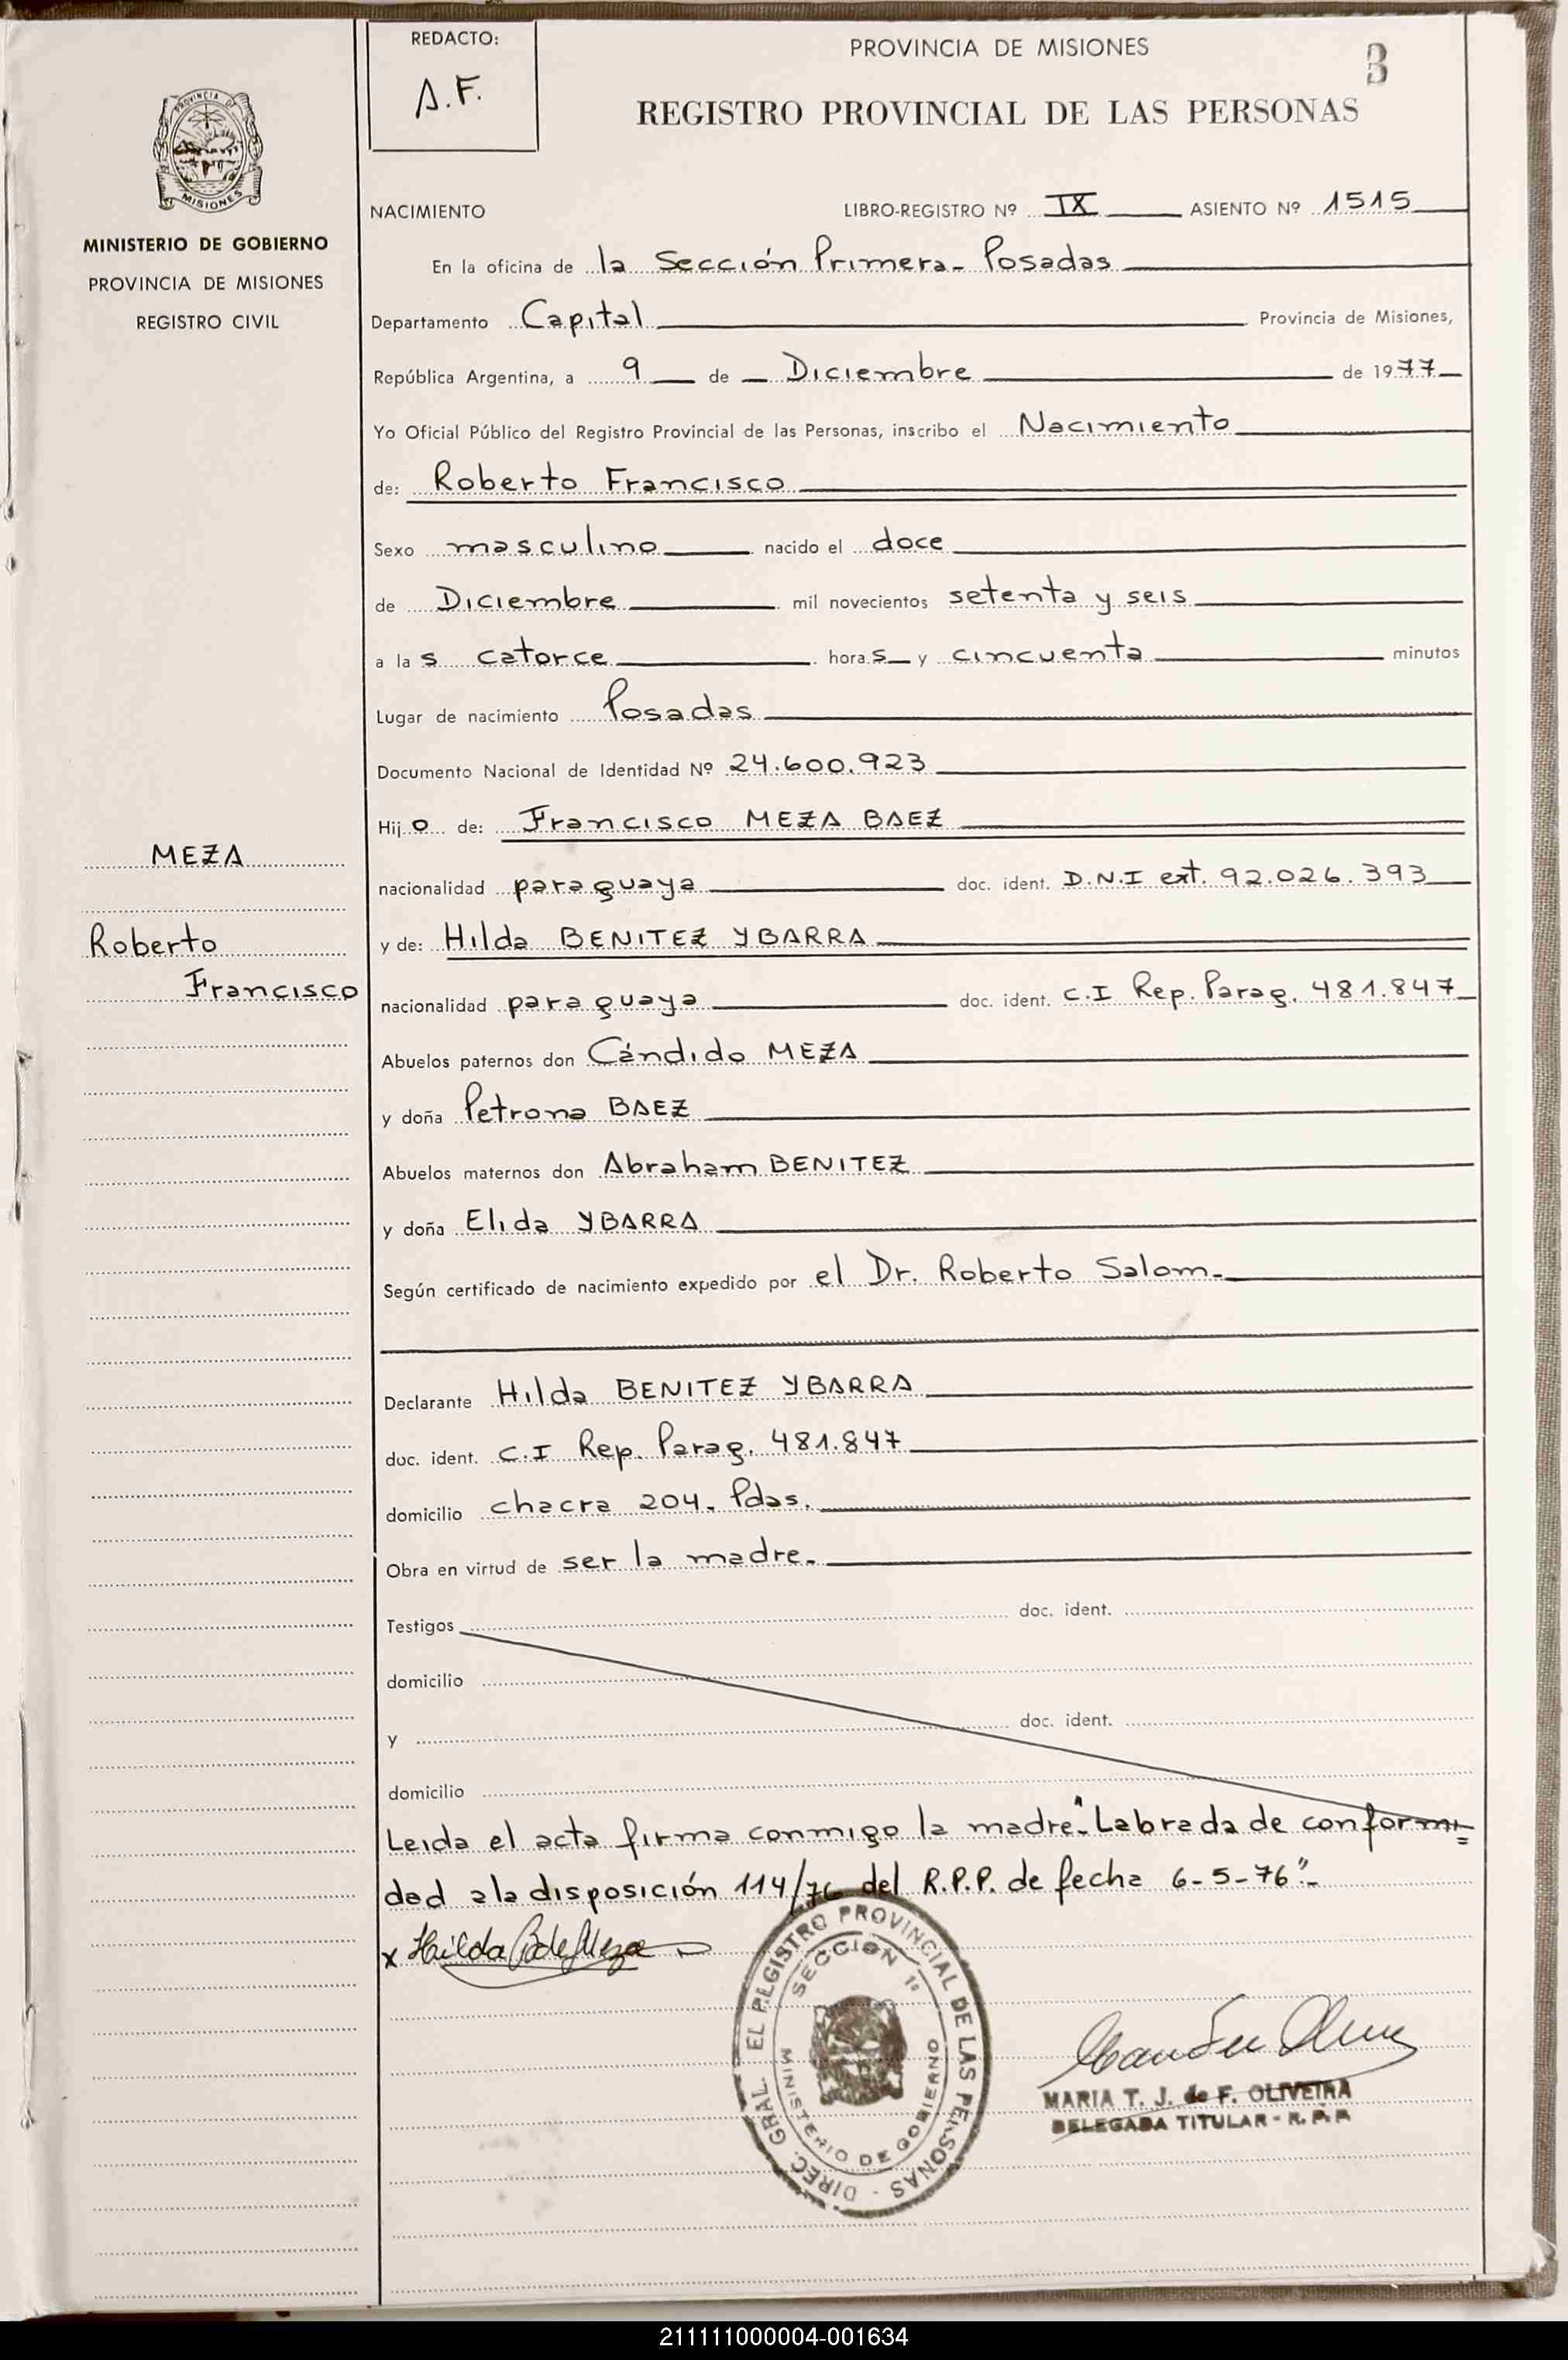 REDACTO:
A.F.
PROVINCIA DE MISIONES
3
REGISTRO PROVINCIAL DE LAS PERSONAS
PROVINCIA DE
MISIONES
MINISTERIO DE GOBIERNO
PROVINCIA DE MISIONES
REGISTRO CIVIL
NACIMIENTO LIBRO-REGISTRO Nº IX ASIENTO Nº 1515
En la oficina de la Sección Primera- Posadas
Departamento Capital Provincia de Misiones,
República Argentina, a 9 de Diciembre de 1977
Yo Oficial Público del Registro Provincial de las Personas, inscribo el Nacimiento
de: Roberto Francisco
Sexo masculino nacido el doce
de Diciembre mil novecientos setenta y seis
a las catorce horas y cincuenta minutos
Lugar de nacimiento Posadas
Documento Nacional de Identidad Nº 24.600.923
Hijo de: Francisco MEZA BAEZ
MEZA
nacionalidad paraguaya doc. ident. D.N.I ext. 92.026.393
Roberto
y de: Hilda BENITEZ YBARRA
Francisco
nacionalidad paraguaya doc. ident. C.I Rep. Parag. 481.847
Abuelos paternos don Cándido MEZA
y doña Petrona BAEZ
Abuelos maternos don Abraham BENITEZ
y doña Elida YBARRA
Según certificado de nacimiento expedido por el Dr. Roberto Salom-
Declarante Hilda BENITEZ YBARRA
doc. ident. C.I Rep. Parag. 481.847
domicilio chacra 204- Pdas.
Obra en virtud de ser la madre-
Testigos doc. ident.
domicilio
y doc. ident.
domicilio
Leida el acta firma conmigo la madre-"Labrada de conformi=
dad a la disposición 114/76 del R.P.P. de fecha 6-5-76"-
x Hilda B de Meza
DIREC. GRAL. EL REGISTRO PROVINCIAL DE LAS PERSONAS -
SECCION 1ª
MINISTERIO DE GOBIERNO
MARIA T. J. de F. OLIVEIRA
DELEGADA TITULAR - R. P. P.
211111000004-001634